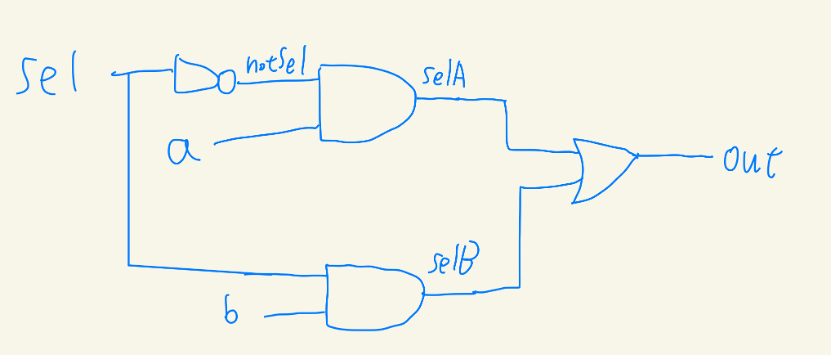 sel
notSel
selA
a
out
selB
b